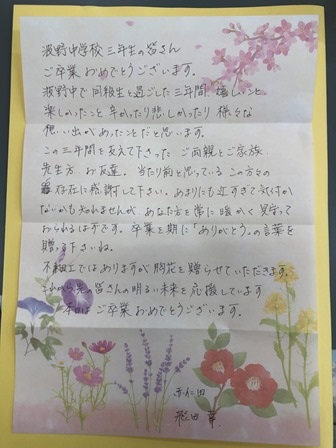 波野中学校 三年生の皆さん
ご卒業 おめでとうございます。
波野中で 同級生と過ごした三年間 嬉しいこと
楽しかったこと 辛かったり悲しかったり 様々な
想い出があったことだと思います。
この三年間を支えて下さった ご両親とご家族
先生方 お友達。当たり前と思っている この方々の
存在に感謝して下さい。あまりにも近すぎて気付か
ないかも知れませんが あなた方を常に暖かく見守って
おられるはずです。卒業を期に「ありがとう」の言葉を
贈って下さいね。
不細工ではありますが 胸花を贈らせていただきます。
これからの皆さんの明るい未来を応援しています
本日はご卒業おめでとうございます。